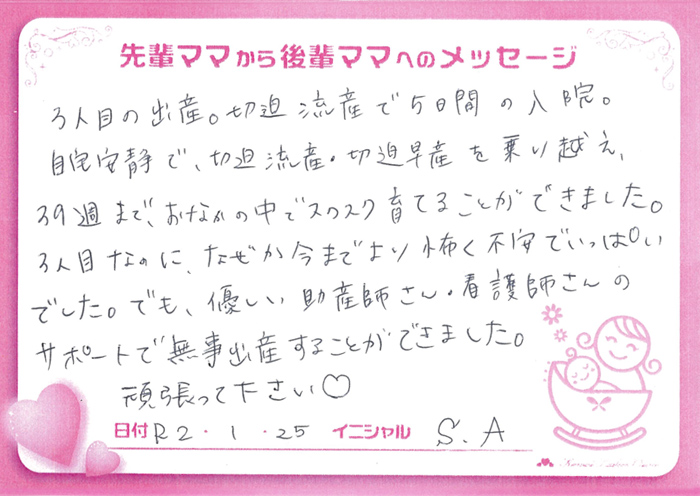 先輩ママから後輩ママへのメッセージ
3人目の出産。切迫流産で5日間の入院。
自宅安静で、切迫流産・切迫早産を乗り越え、
39週まで、おなかの中でスクスク育てることができました。
3人目なのに、なぜか今までより怖く不安でいっぱい
でした。でも、優しい助産師さん・看護師さんの
サポートで無事出産することができました。
頑張って下さい♡
日付 R2・1・25 イニシャル S.A